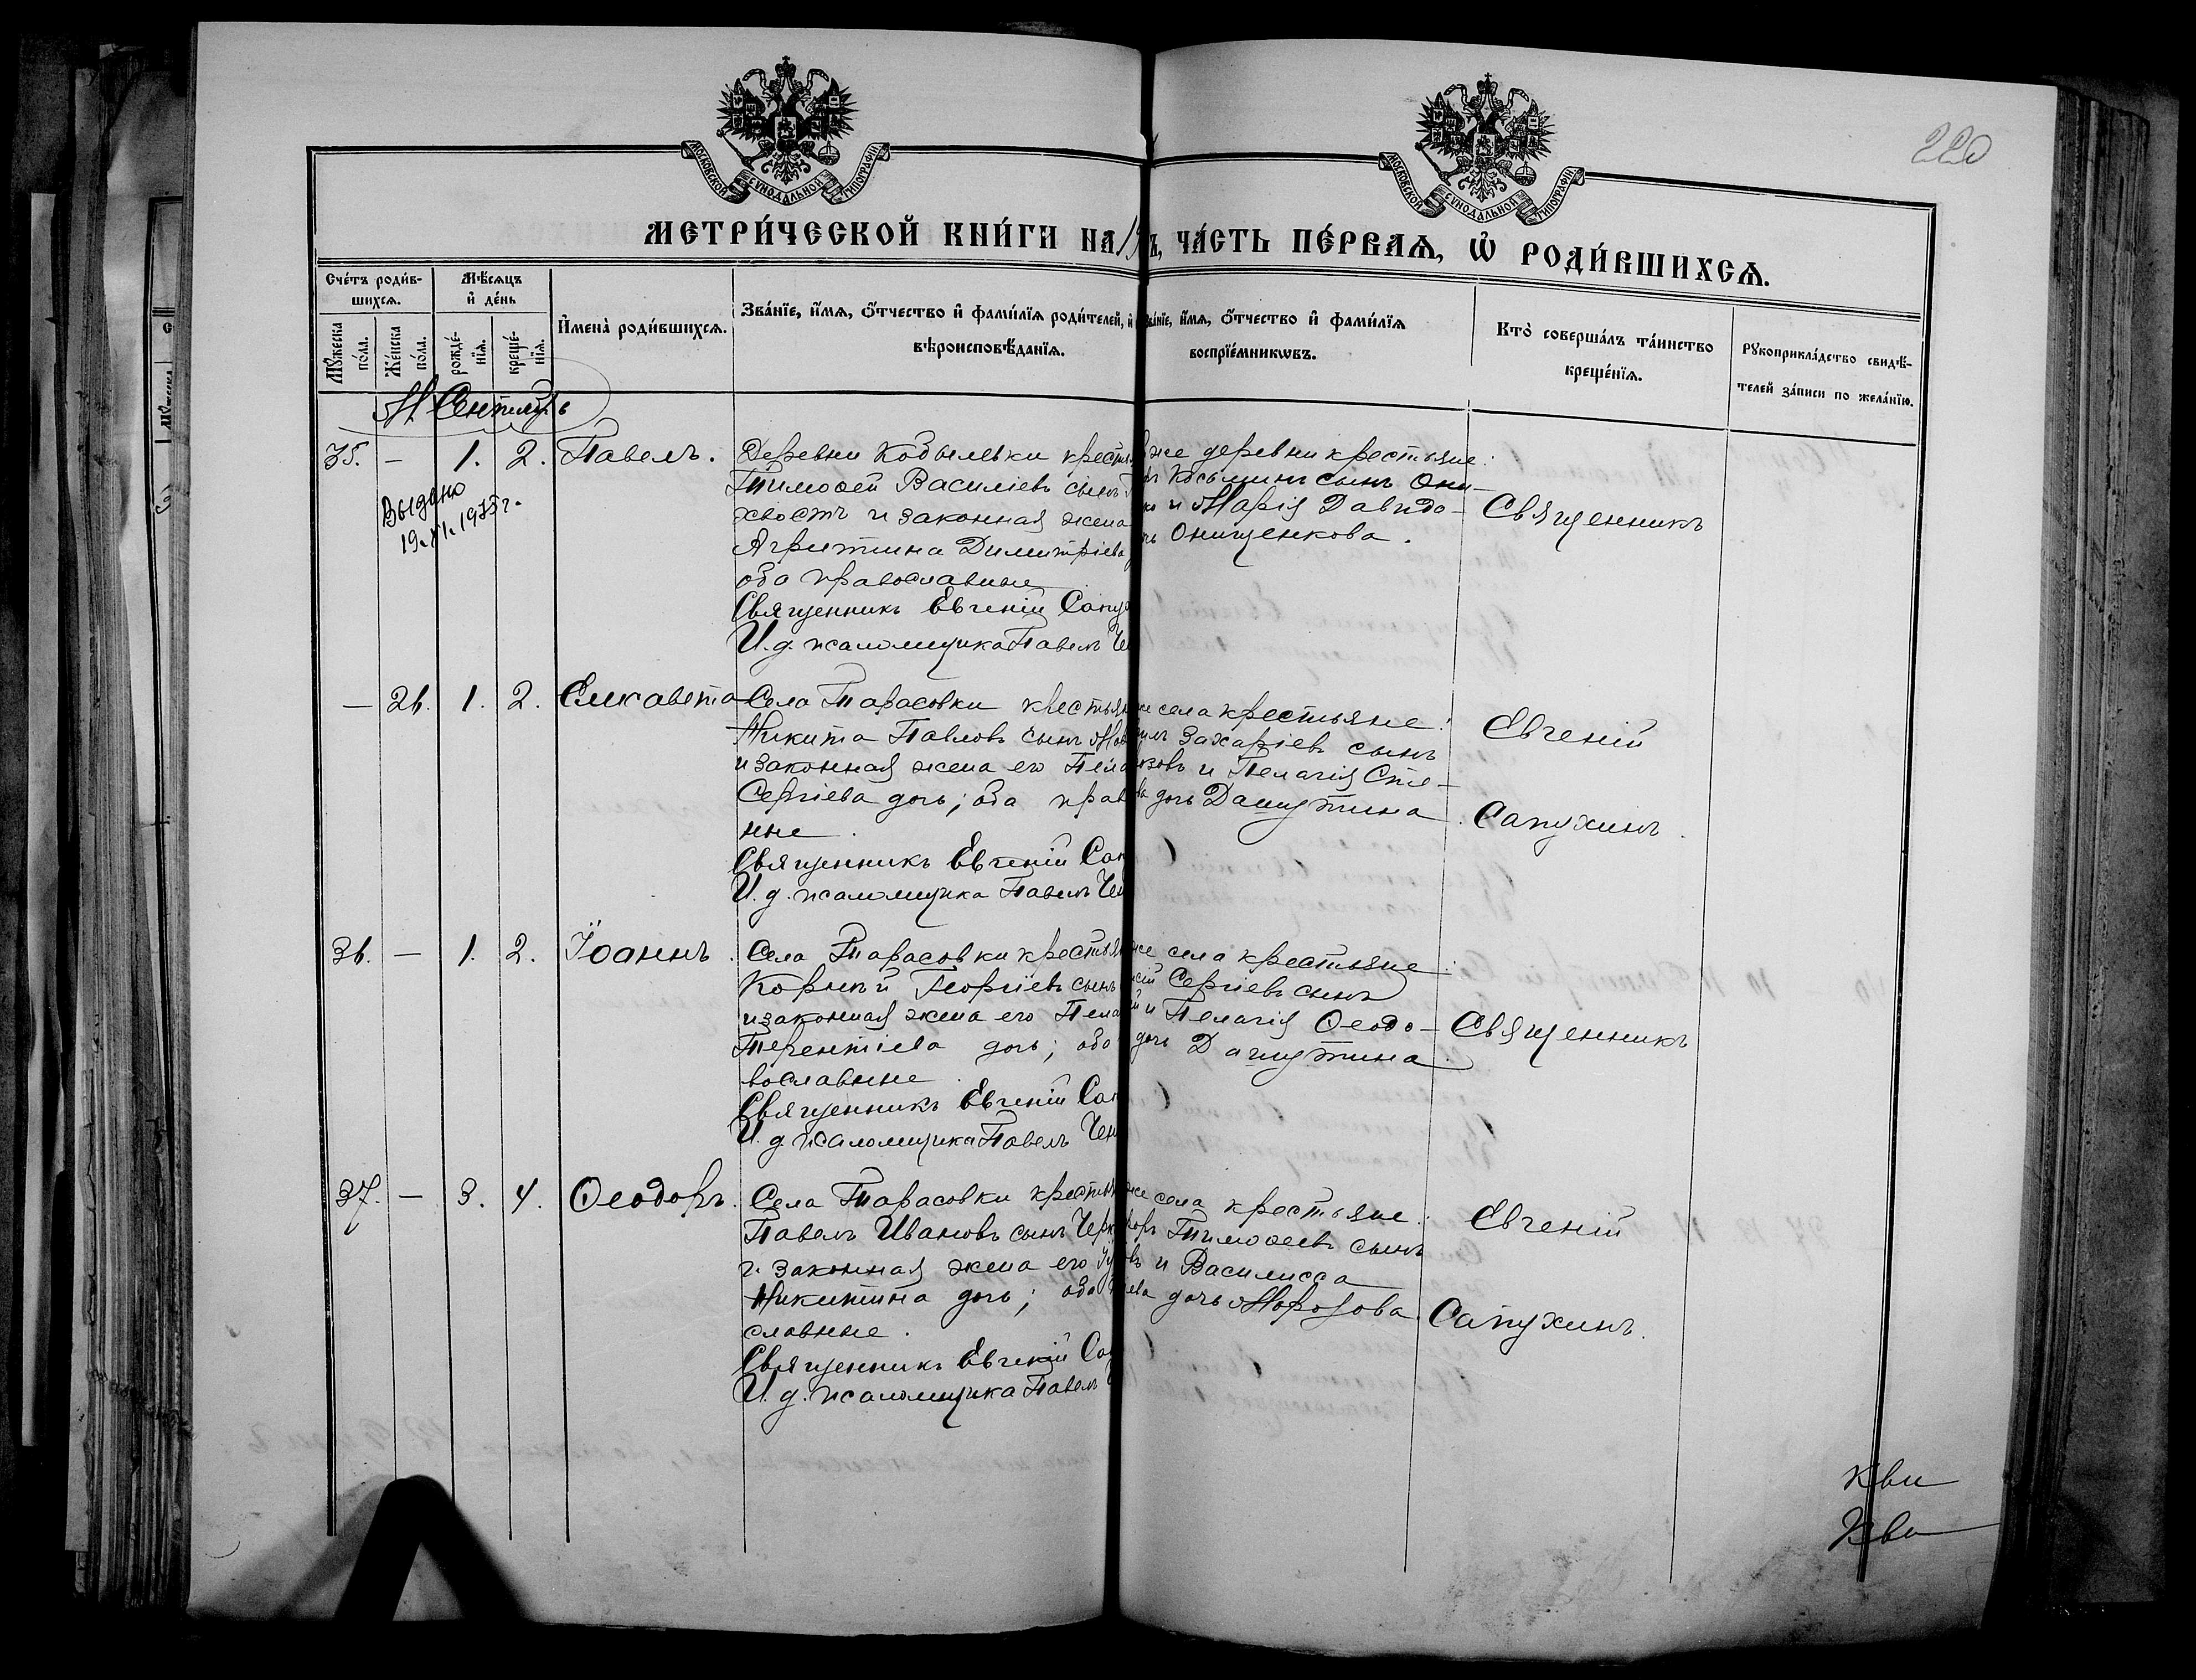 220
МОСКОВСКОЙ СѴНОДАЛЬНОЙ ТИПОГРАФІИ
МОСКОВСКОЙ СѴНОДАЛЬНОЙ ТИПОГРАФІИ
МЕТРИ́ЧЕСКОЙ КНИ́ГИ НА 19
Ъ, ЧА́СТЬ ПЕ́РВАѦ, Ѡ҆ РОДИ́ВШИХСѦ.
Сче́тъ роди́в-
шихсѧ.
Мѣ́сѧцъ
и҆ де́нь
Мꙋ́жеска по́ла.
Же́нска по́ла.
рожде́-
нїѧ.
креще́-
нїѧ.
И҆мена̀ роди́вшихсѧ.
Зва́нїе, и҆́мѧ, ѻ҆́тчество и҆ фами́лїѧ роди́телей, и҆
вѣроисповѣ́данїѧ.
Зва́нїе, и҆́мѧ, ѻ҆́тчество и҆ фами́лїѧ
воспрїе́мникѡвъ.
Кто̀ соверша́лъ та́инство
креще́нїѧ.
Рꙋкоприкла́дство свидѣ́-
телей за́писи по жела́нїю.
М. Сентябрь
35. — 1. 2. Павелъ.
Выдано
19. XI. 1935 г.
Деревни Кобылевки крест
Тимоѳей Василіевъ сынъ
хвостъ и законная жена
Агрипина Димитріева
оба православные
Священникъ Евгеній Сапу
И. д. псаломщика Павелъ Че
же деревни крестьяне:
Косьминъ сынъ Они-
и Марія Давидо-
Онищенкова.
Священникъ
— 26. 1. 2. Елисавета
Села Тарасовки крестья
Никита Павловъ сынъ
и законная жена его Пела
Сергіева дочь; оба прав
ные.
Священникъ Евгеній Сап
И. д. псаломщика Павелъ Че
села крестьяне:
Захаріевъ сынъ
и Пелагія Сте-
дочь Дашутина
Евгеній
Сапухинъ.
36. — 1. 2. Іоаннъ.
Села Тарасовки крестья
Корнилій Георгіевъ сынъ
и законная жена его Пела
Терентіева дочь; оба
вославные.
Священникъ Евгеній Сап
И. д. псаломщика Павелъ Че
села крестьяне:
Сергіевъ сынъ
и Пелагія Ѳеодо-
дочь Дашутина.
Священникъ
37. — 3. 4. Ѳеодоръ.
Села Тарасовки крестья
Павелъ Ивановъ сынъ Черк
и законная жена его
Никитина дочь; оба
славные.
Священникъ Евгеній Сап
И. д. псаломщика Павелъ
же села крестьяне:
Тимоѳеевъ сынъ
и Василисса
дочь Морозова.
Евгеній
Сапухинъ.